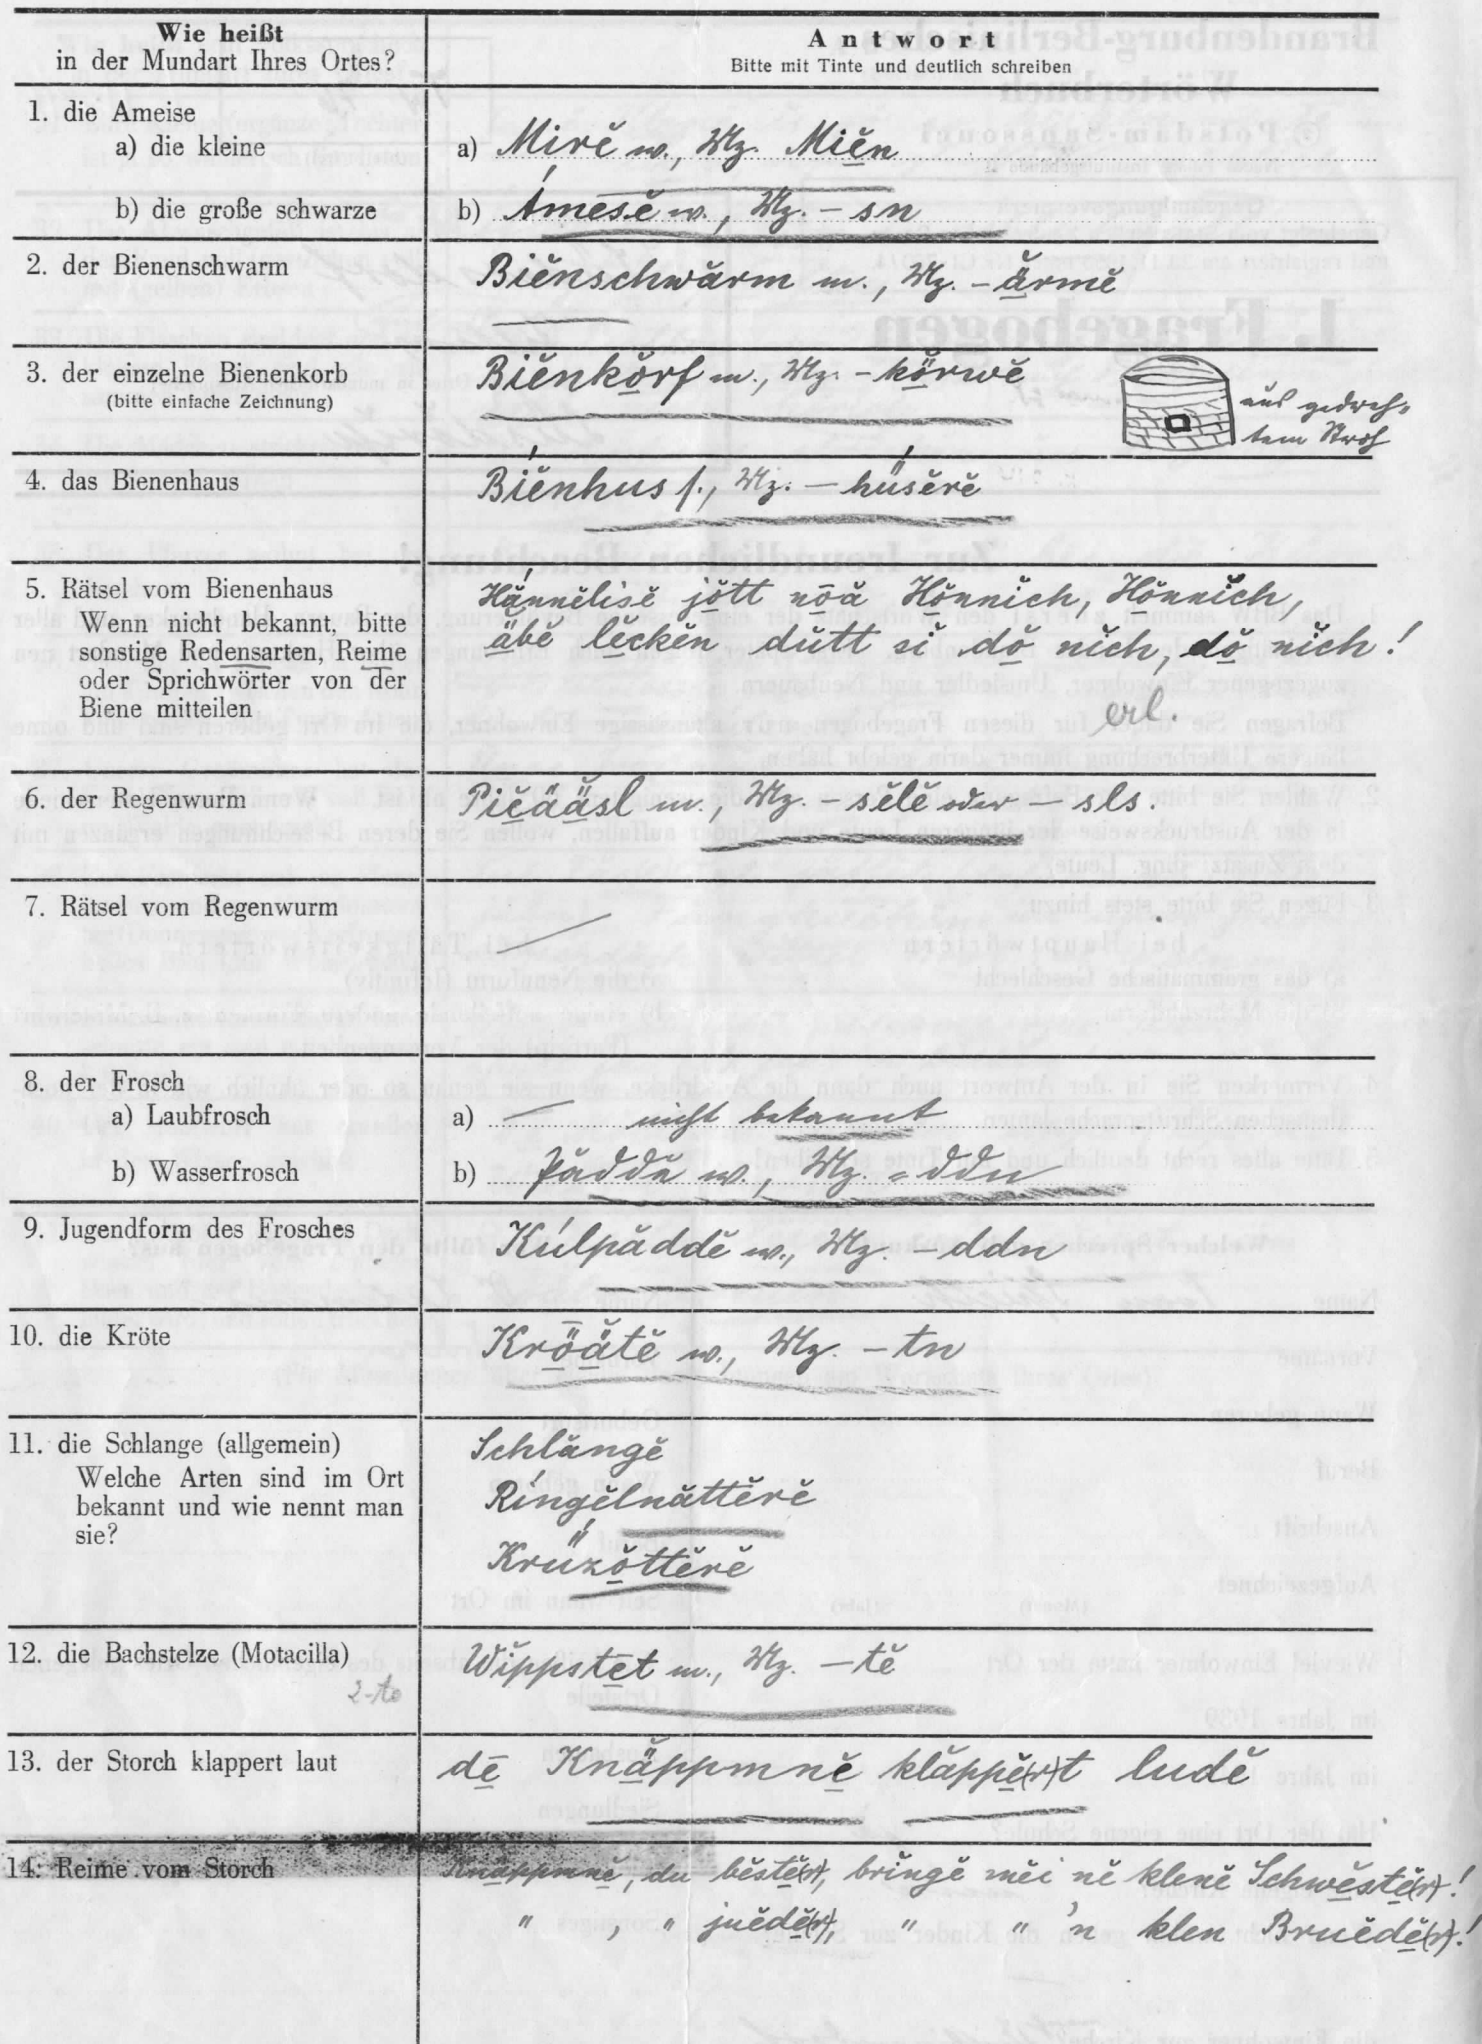 Wie heißt
in der Mundart Ihres Ortes?
Antwort
Bitte mit Tinte und deutlich schreiben
1. die Ameise
a) die kleine
a) Mirĕ w., Mz. Miĕn
b) die große schwarze
b) Ámesĕ w., Mz. – sn
2. der Bienenschwarm
Biĕnschwărm m., Mz. – ärmĕ
3. der einzelne Bienenkorb
(bitte einfache Zeichnung)
Biĕnkŏrf m., Mz. – körwĕ
aus gedreh-
tem Stroh
4. das Bienenhaus
Biĕnhus s., Mz. – hüsĕrĕ
5. Rätsel vom Bienenhaus
Wenn nicht bekannt, bitte
sonstige Redensarten, Reime
oder Sprichwörter von der
Biene mitteilen
Hännĕlisĕ jŏtt nōă Hŏnnich, Hŏnnich,
äbĕ lĕckĕn dŭtt si dŏ nĭch, dŏ nĭch!
erl.
6. der Regenwurm
Piĕääsl m., Mz. – sĕlĕ oder – sls.
7. Rätsel vom Regenwurm
—
8. der Frosch
a) Laubfrosch
a) — nicht bekannt
b) Wasserfrosch
b) Päddĕ w., Mz. – ddn
9. Jugendform des Frosches
Kúlpăddĕ w., Mz. – ddn
10. die Kröte
Krȫătĕ w., Mz. – tn
11. die Schlange (allgemein)
Welche Arten sind im Ort
bekannt und wie nennt man
sie?
Schlăngĕ
Ríngĕlnăttĕrĕ
Krüzŏttĕrĕ
12. die Bachstelze (Motacilla)
2-te
Wĭppstet m., Mz. – tĕ
13. der Storch klappert laut
dē Knäppmnĕ klăppĕ(r)t ludĕ
14. Reime vom Storch
Knäppmnĕ, du bĕstĕ(r), brĭngĕ mĕi nĕ klenĕ Schwĕstĕ(r)!
" , " juĕdĕ(r), " " 'n klen Bruĕdĕ(r)!